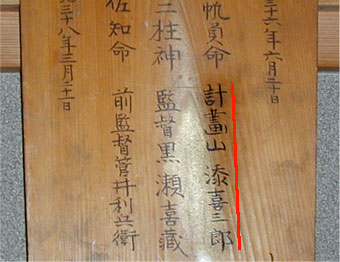 三十六年六月二十日
帆負命 計畫山 漆喜三郎
三柱神 監督黒瀬喜藏
佐知命 前監督管井利兵衛
三十八年三月二十一日